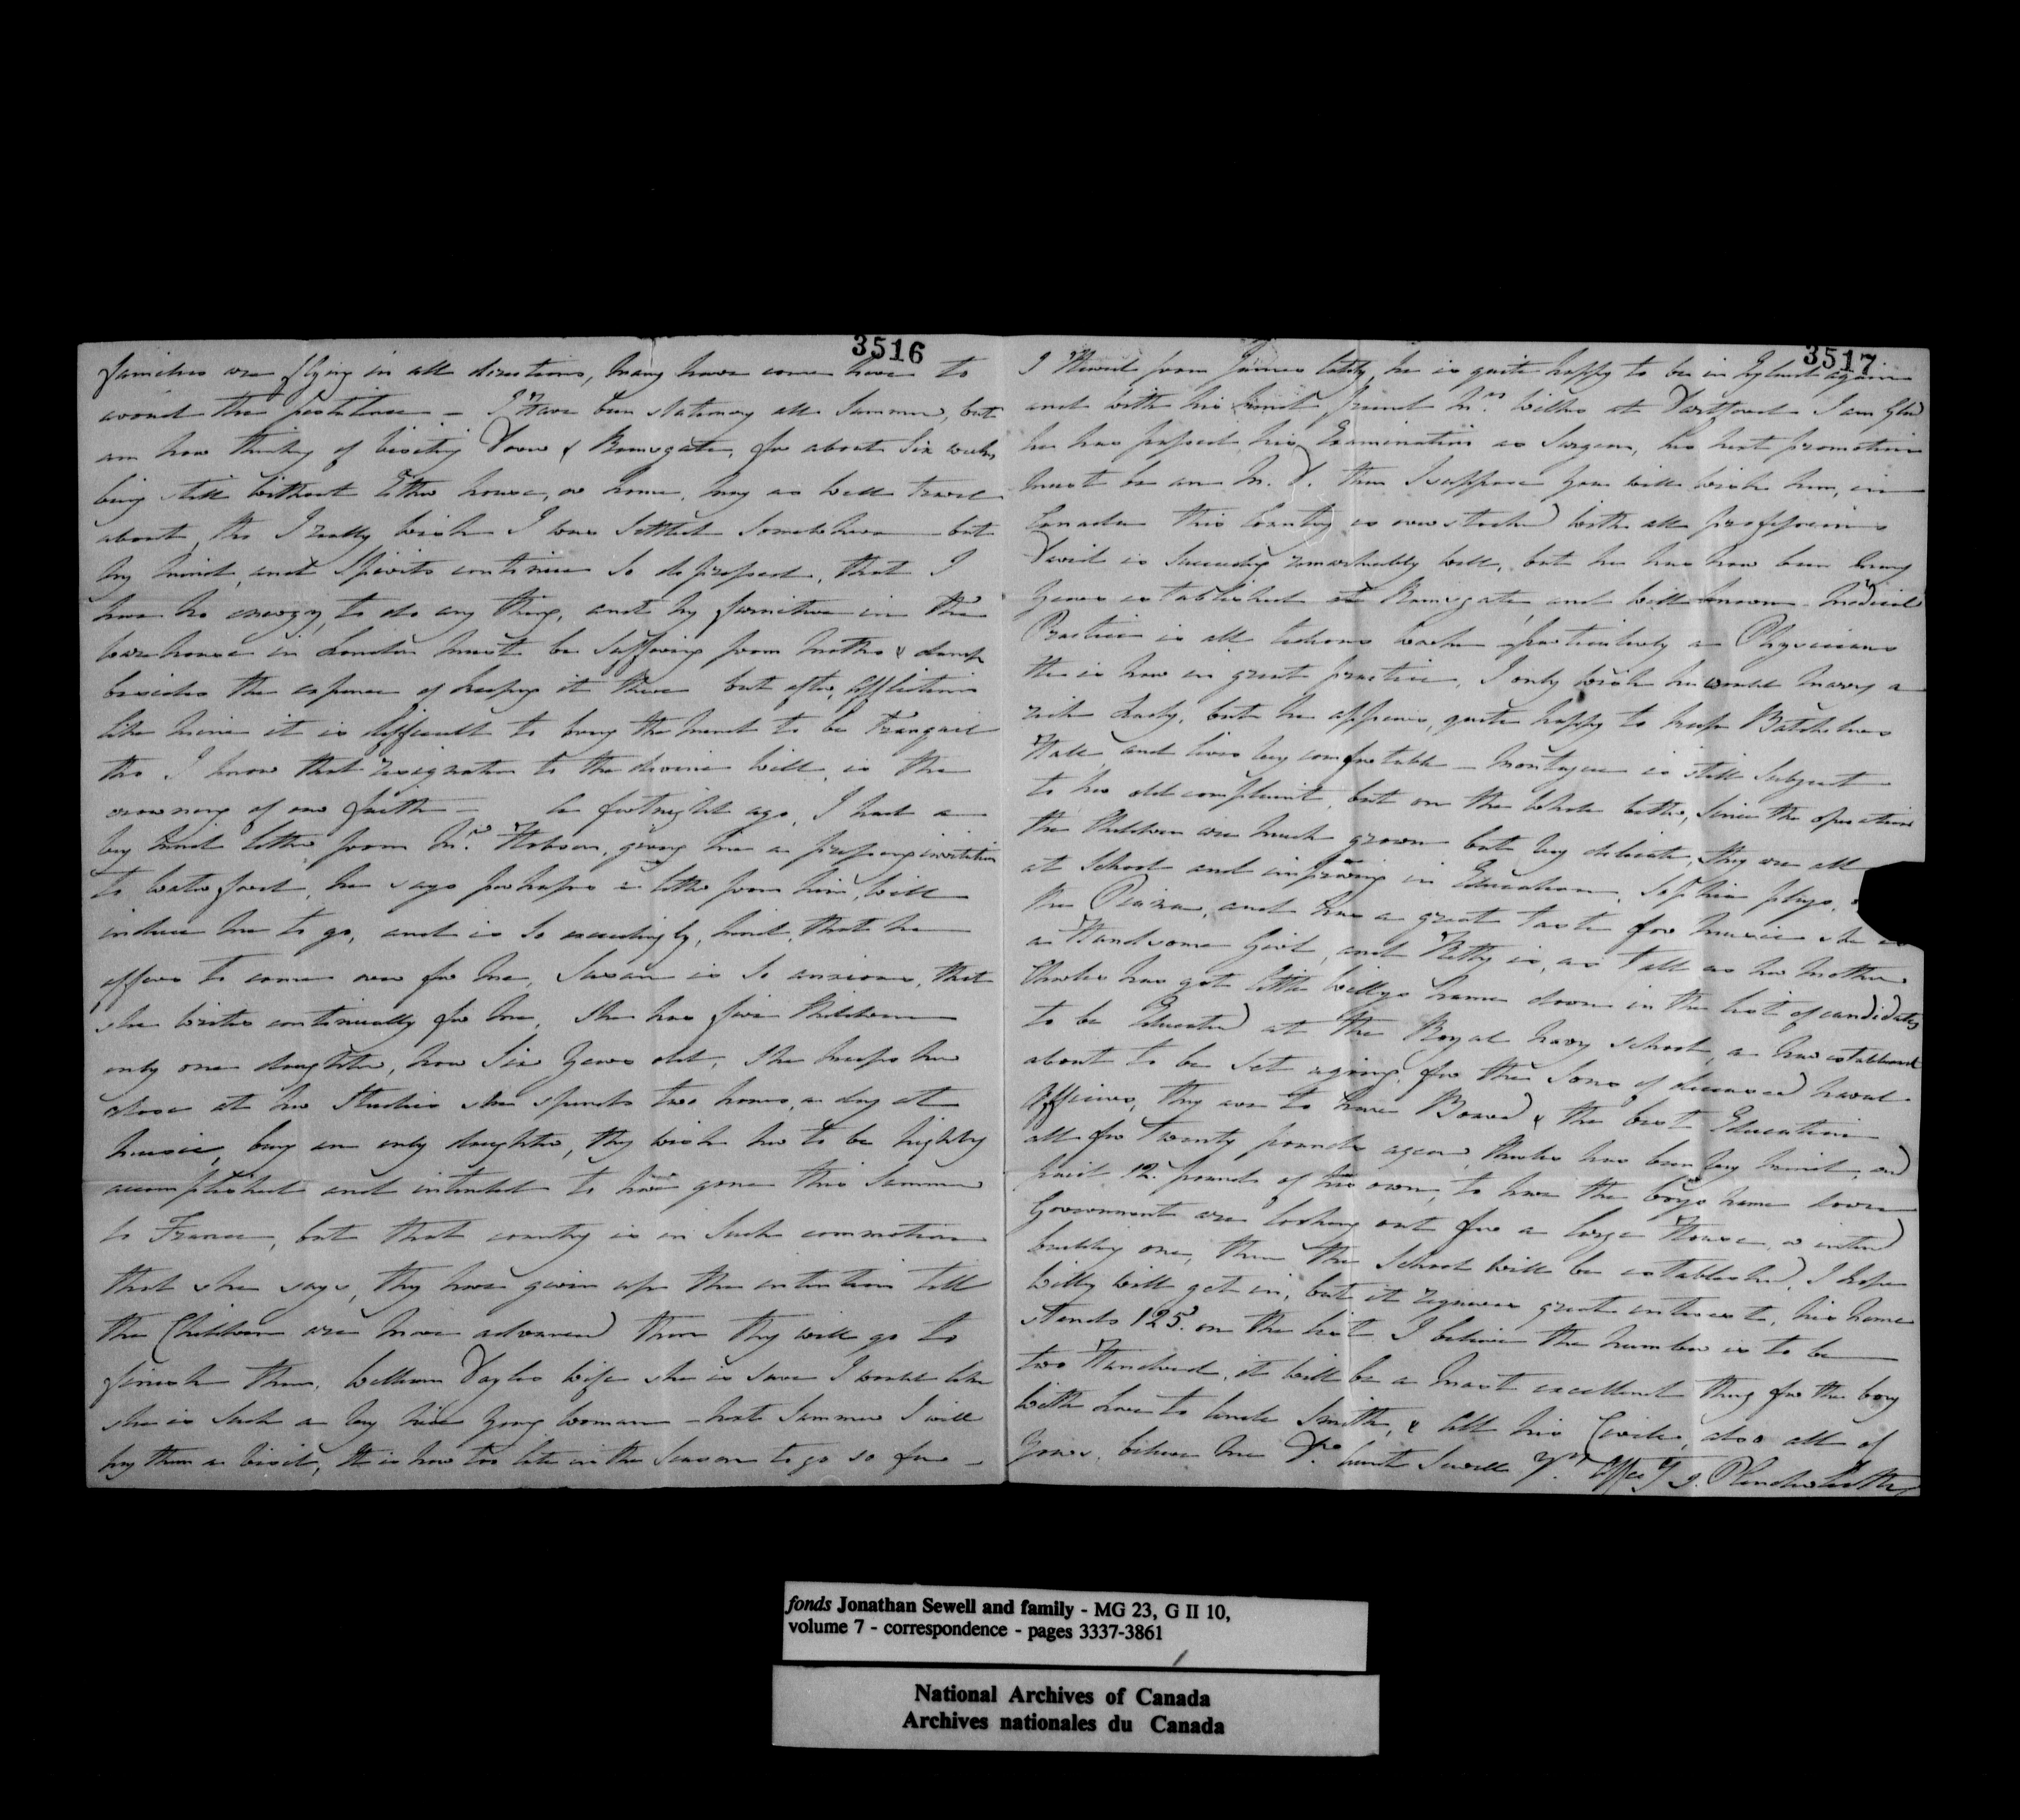 3516
families are flying in all directions, many have come here to
avoid the pestilence - I Have been stationary all Summer, but
am now thinking of visiting Dover & Ramsgate, for about Six weeks
being still without Either house, or home, may as well travel
about, tho I really wish I was Settled Somewhere - but
my mind, and Spirits continue So depressed, that I
have no energy, to do any thing, and my furniture in the
warehouse in London must be Suffering from moths & damp
besides the expence of keeping it there but after, Afflictions
like mine it is difficult to bring the mind to be Tranquil
tho I know that resignation to the divine will, is the
crowning of our faith - a fortnight ago, I had a
very kind letter from Mr. Hobson, giving me a pressing invitation
to Waterford, he says perhaps a letter from him, will
induce me to go, and is So exceedingly, kind, that he
offers to come over for me, Susan is So anxious, that
she writes continually for me, She has five Children
only one daughter, now Six Years old, She keeps her
close at her Studies she spends two hours, a day at
music, being an only daughter, they wish her to be highly
accomplished and intended to have gone this Summer
to France, but that country is in Such commotion
that she says, they have given up the intention till
the Children are more advanced then they will go to
finish them. William Taylors wife she is sure I would like
she is Such a very nice young woman - next Summer I will
pay them a visit, It is now too late in the Season to go so far -
3517
I Heard from James lately, he is quite happy to be in England again
and with his kind friend Mrs. Willes at Dartford I am glad
he has passed his Examination as Surgeon, his next promotion
must be an M. D. then I suppose you will wish him, in
Canada this Country is overstocked with all professions
David is Succeeding remarkably well, but he has now been many
Years established at Ramsgate, and well known - Medical
Practice is all tedious work particularly a Physicians
He is now in great practice, I only wish he would marry a
rich Lady, but he appears, quite happy to keep Batchelors
Hall, and lives very comfortable - Montague is still Subject
to his old complaint, but on the whole better, Since the operation
the Children are much grown but very delicate, they are all
at School and improving in Education, Sophia plays,
the Piano, and has a great taste for music she is
a Handsome Girl, and Kitty is, as tall as her Mother
Charles has got little Willys name down in the list of candidates
to be Educated at the Royal Navy School, a new establishment
about to be set agoing, for the Sons of deceased naval
Officers, they are to have Board & the best Education
all for Twenty pounds a year, Charles has been very kind, and
paid 12 pounds of his own, to have the boys name down
Government are looking out for a large House, or intend
building one, then the School will be established, I hope
Willy will get in, but it requires great interest, his name
stands 125. on the list I believe the number is to be
two Hundred, it will be a most excellent thing for the boy
With Love to Uncle Smith, & all his Circle, also all of
Yours, believe me Dr. Aunt Sewell Yr. Affect.
fonds Jonathan Sewell and family - MG 23, G II 10,
volume 7 - correspondence - pages 3337-3861
National Archives of Canada
Archives nationales du Canada